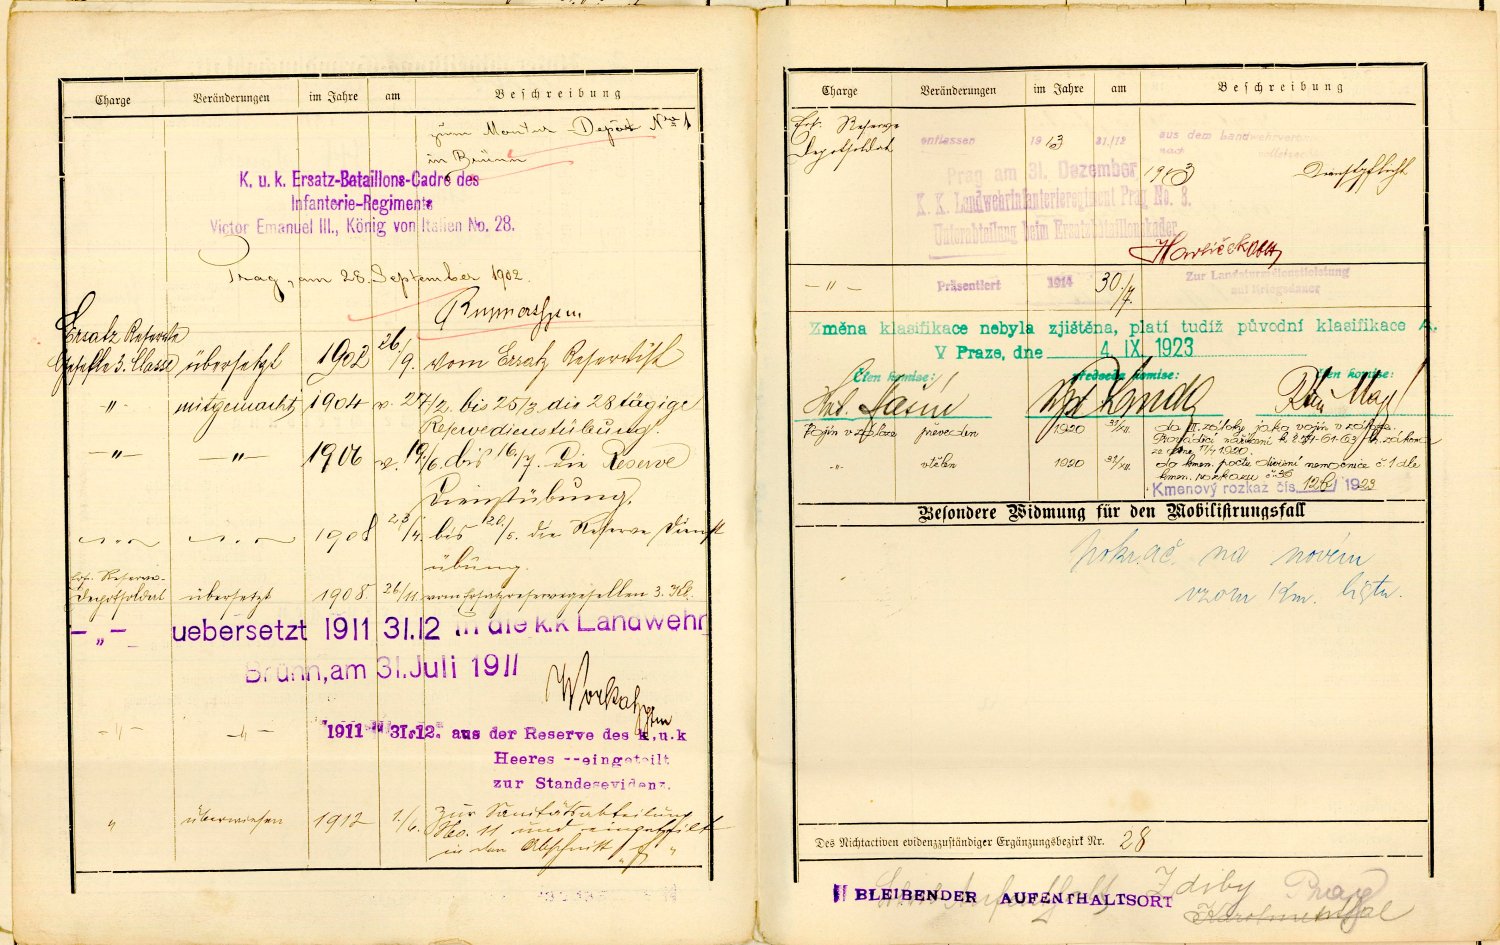 Charge Veränderungen im Jahre am Beschreibung
zum Montur-Depôt No 1
in Brünn
K. u. k. Ersatz-Bataillons-Cadre des
Infanterie-Regiments
Victor Emanuel III., König von Italien No. 28.
Prag, am 28. September 1902.
Ersatz Reserve
Geselle 3. Classe übersetzt 1902 26/9. vom Ersatz Reservist
" mitgemacht 1904 v. 27/2. bis 25/3. die 28 tägige
Reservedienstübung.
-"- -"- 1906 v. 19./6. bis 16/7. die Reserve
Dienstübung.
1908 bis die Reserve Dienst
übung.
Ers. Reserve-
Depotsoldat übersetzt 1908. 26/11. vom Ersatzreservegesellen 3. Kl.
-"- uebersetzt 1911 31.12 in die k.k Landwehr
Brünn, am 31. Juli 1911
-"- -"- 1911 31.12. aus der Reserve des k.u.k
Heeres --eingeteilt
zur Standesevidenz.
" überwiesen 1912 1./6. zur Sanitätsabteilung
No. 11 und eingeteilt
in den Abschnitt
Charge Veränderungen im Jahre am Beschreibung
Ers. Reserve
Depotsoldat entlassen 1913 31/12 aus dem Landwehrverbande
nach vollstreckter
Dienstpflicht
Prag am 31. Dezember 1913
K. K. Landwehrinfanterieregiment Prag No. 8.
Unterabteilung beim Ersatzbataillonskader
Havlíček
-"- Präsentiert 1914 30./7. Zur Landsturmdienstleistung
auf Kriegsdauer
Změna klasifikace nebyla zjištěna, platí tudíž původní klasifikace A.
V Praze, dne 4. IX. 1923
Člen komise: předseda komise: člen komise:
Vojín v záloze převeden 1920 31/XII. do II. zálohy jako vojín v záloze.
-"- vtělen 1920 31/XII. do kmen. počtu divisní nemocnice č. 1 dle
kmen. rozkazu č. 36
Kmenový rozkaz čís. 126/1923
Besondere Widmung für den Mobilisirungsfall
pokrač. na novém
vzoru km. listu.
Des Nichtactiven evidenzzuständiger Ergänzungsbezirk Nr. 28
BLEIBENDER AUFENTHALTSORT Zdiby Prag
Karolinenthal